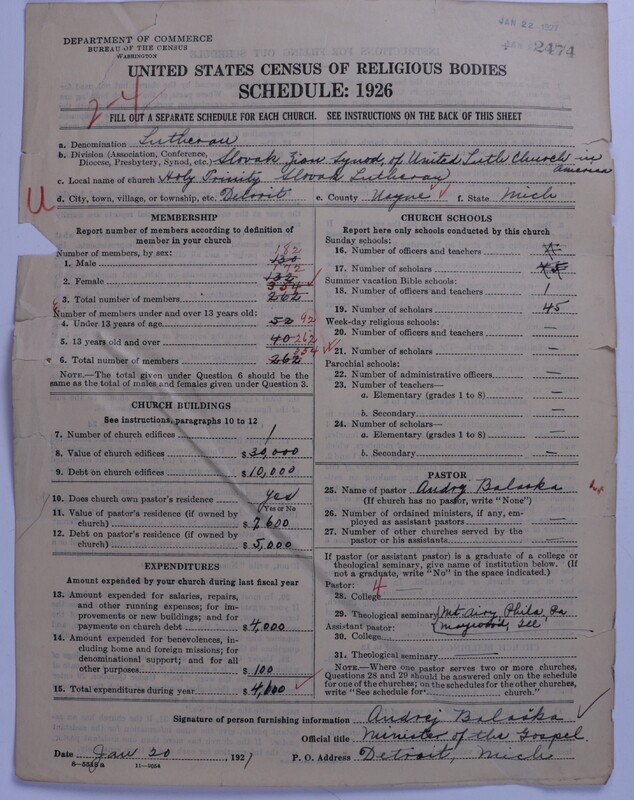 JAN 22 1927
2474
DEPARTMENT OF COMMERCE
BUREAU OF THE CENSUS
WASHINGTON
UNITED STATES CENSUS OF RELIGIOUS BODIES
SCHEDULE: 1926
2-4
FILL OUT A SEPARATE SCHEDULE FOR EACH CHURCH. SEE INSTRUCTIONS ON THE BACK OF THIS SHEET
a. Denomination Lutheran
b. Division (Association, Conference, Diocese, Presbytery, Synod, etc.) Slovak Zion Synod, of United Luth Church in America
c. Local name of church Holy Trinity Slovak Lutheran
U d. City, town, village, or township, etc. Detroit e. County Wayne f. State Mich
MEMBERSHIP
Report number of members according to definition of
member in your church
Number of members, by sex:
182
1. Male 130
172
2. Female 132
354
3. Total number of members 262
Number of members under and over 13 years old:
4. Under 13 years of age 52 92
5. 13 years old and over 40 262
6. Total number of members 262 354
NOTE.—The total given under Question 6 should be the
same as the total of males and females given under Question 3.
CHURCH BUILDINGS
See instructions, paragraphs 10 to 12
7. Number of church edifices 1
8. Value of church edifices $ 30,000
9. Debt on church edifices $ 10,000
10. Does church own pastor's residence? yes
Yes or No
11. Value of pastor's residence (if owned by
church) $ 7,600
12. Debt on pastor's residence (if owned by
church) $ 5,000
EXPENDITURES
Amount expended by your church during last fiscal year
13. Amount expended for salaries, repairs,
and other running expenses; for im-
provements or new buildings; and for
payments on church debt $ 4,000
14. Amount expended for benevolences,
including home and foreign missions; for
denominational support; and for all
other purposes $ 100
15. Total expenditures during year $ 4,100
CHURCH SCHOOLS
Report here only schools conducted by this church
Sunday schools:
16. Number of officers and teachers
17. Number of scholars 45
Summer vacation Bible schools:
18. Number of officers and teachers 1
19. Number of scholars 45
Week-day religious schools:
20. Number of officers and teachers —
21. Number of scholars —
Parochial schools:
22. Number of administrative officers —
23. Number of teachers—
a. Elementary (grades 1 to 8) —
b. Secondary —
24. Number of scholars—
a. Elementary (grades 1 to 8) —
b. Secondary —
PASTOR
25. Name of pastor Andrej Balaska
(If church has no pastor, write "None")
26. Number of ordained ministers, if any, em-
ployed as assistant pastors —
27. Number of other churches served by the
pastor or his assistants —
If pastor (or assistant pastor) is a graduate of a college or
theological seminary, give name of institution below. (If
not a graduate, write "No" in the space indicated.)
Pastor: 4
28. College —
29. Theological seminary Mt. Airy Phila, Pa
Assistant pastor: Maywood, Ill
30. College
31. Theological seminary
NOTE.—Where one pastor serves two or more churches,
Questions 28 and 29 should be answered only on the schedule
for one of the churches; on the schedules for the other churches,
write "See schedule for church."
Signature of person furnishing information Andrej Balaška
Official title Minister of the Gospel
Date Jan 20, 1927 P. O. Address Detroit, Mich
8-5513a 11-9034